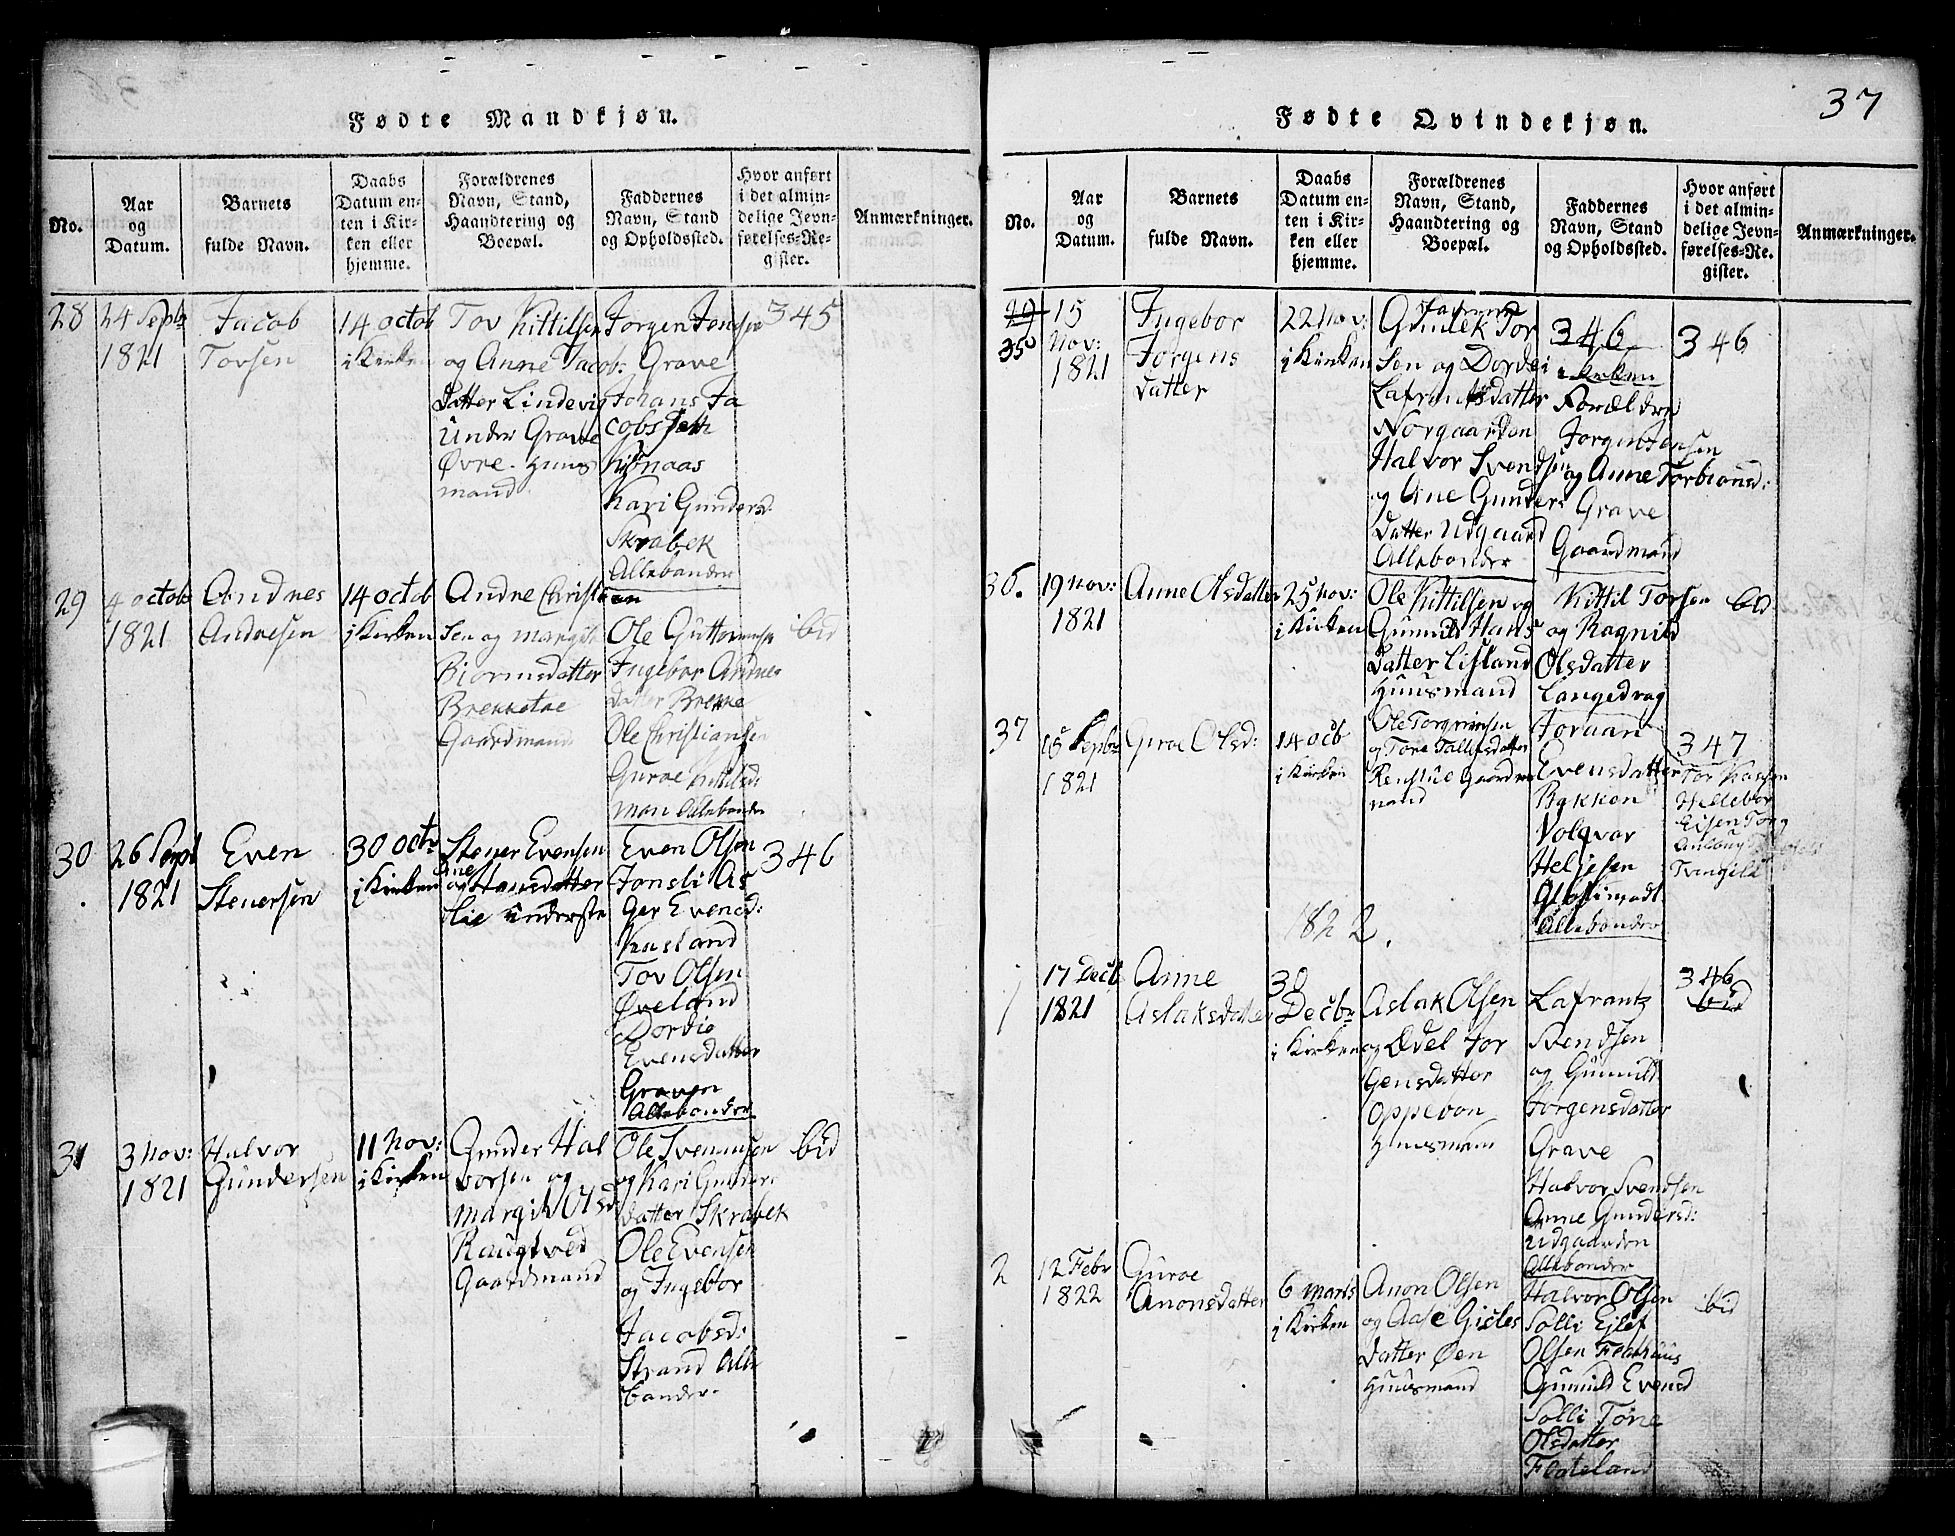 37
Fødte Mandkjøn.
No.
Aar
og
Datum.
Barnets
fulde Navn.
Daabs
Datum en-
ten i Kir-
ken eller
hjemme.
Forældrenes
Navn, Stand,
Haandtering og
Boepæl.
Faddernes
Navn, Stand
og Opholdssted.
Hvor anført
i det almin-
delige Jevn-
førelses-Re-
gister.
Anmærkninger.
28
24 Septb
1821
Jacob
Torsen
14 octob
i Kirken
Tov Kittilsen
og Anne Jacob:
datter Lindevig
Under Grave
Øvre. Huus
mand
Jorgen Jensen
Grave
Johans Ja
cobs
Kari Gunders
Skrabek
Allebander
345
29
4 octob
1821
Andres
Andresen
14 octob
i Kirken
Andre Christi
sen og margit
Biornsdatter
Brekketae
Gaardmand
Ole Guttormsen
Ingebor Andres
datter Brekke
Ole Christiansen
Guroe
Allebander
ibid
30
26 Sept
1821
Even
Stenersen
30 octr
i Kirken
Stener Evensen
og Ane Hansdatter
lie underste
Even Olsen
Jonsli As
ger Evensd:
Venstand
Tov Olsen
Øveland
Dordie
Evensdatter
Graven
Allebander
346
31
3 Nov:
1821
Halvor
Gundersen
11 Nov:
i Kirken
Gunder Hal
vorsen og
margit Olsd
Raugtved
Gaardmand
Ole Svennsen
og Kari Gunder
datter Skrabek
Ole Evensen
og Ingebor
Jacobsd:
Strand Alle
bander.
ibid
Fødte Qvindekjøn.
No.
Aar
og
Datum.
Barnets
fulde Navn.
Daabs
Datum en-
ten i Kir-
ken eller
hjemme.
Forældrenes
Navn, Stand,
Haandtering og
Boepæl.
Faddernes
Navn, Stand
og Opholdssted.
Hvor anført
i det almin-
delige Jevn-
førelses-Re-
gister.
Anmærkninger.
29
35
15
Nov:
1821
Ingebor
Jorgens
datter
22 Nov:
i Kirken
Gunlek Tor
sen og Dordei
Lafrantsdatter
Norgaarden
Halvor Svendsen
og Ane Gunder
datter Udgaard
Allebander
346
i kirken
Foræld
Jorgen Jensen
og Anne Torbionsd:
Grave
Gaardmand
346
36.
19 Nov:
1821
Anne Olsdatter
25 Nov:
i Kirken
Ole Kittilsen og
Gunnild Hans
datter Lifland
Huusmand
Kittil Torsen
og Ragnild
Olsdatter
Langedrag
ibid
37
15 Septbr
1821
Guroe Olsd:
14 octb
i Kirken
Ole Torgrimsen
og Tore Tallefsdatter
Renstue Gaard
mand
Joraan
Evensdatter
Bakken
Volqvar
Heljesen
Allebander
347
1822.
1
17 Decb
1821
Anne
Aslaksdatter
30
Decbr
i Kirken
Aslak Olsen
og Edel Jor
gensdatter
Oppebøn
Huusmand
Lafrantz
Svendsen
og Gunnild
Jorgensdatter
Grave
Halvor Svendsen
Anne Gundersd:
Udgaarden
Allebander
346
ibid
2
12 Febr
1822
Guroe
Anonsdatter
6 Marts
i Kirken
Anon Olsen
og Aase Gicles
datter Øen
Huusmand
Halvor Olsen
Solli Ejlef
Olsen Flathuus
Gunnild Evensd
Solli Tone
Olsdatter
Flateland
ibid